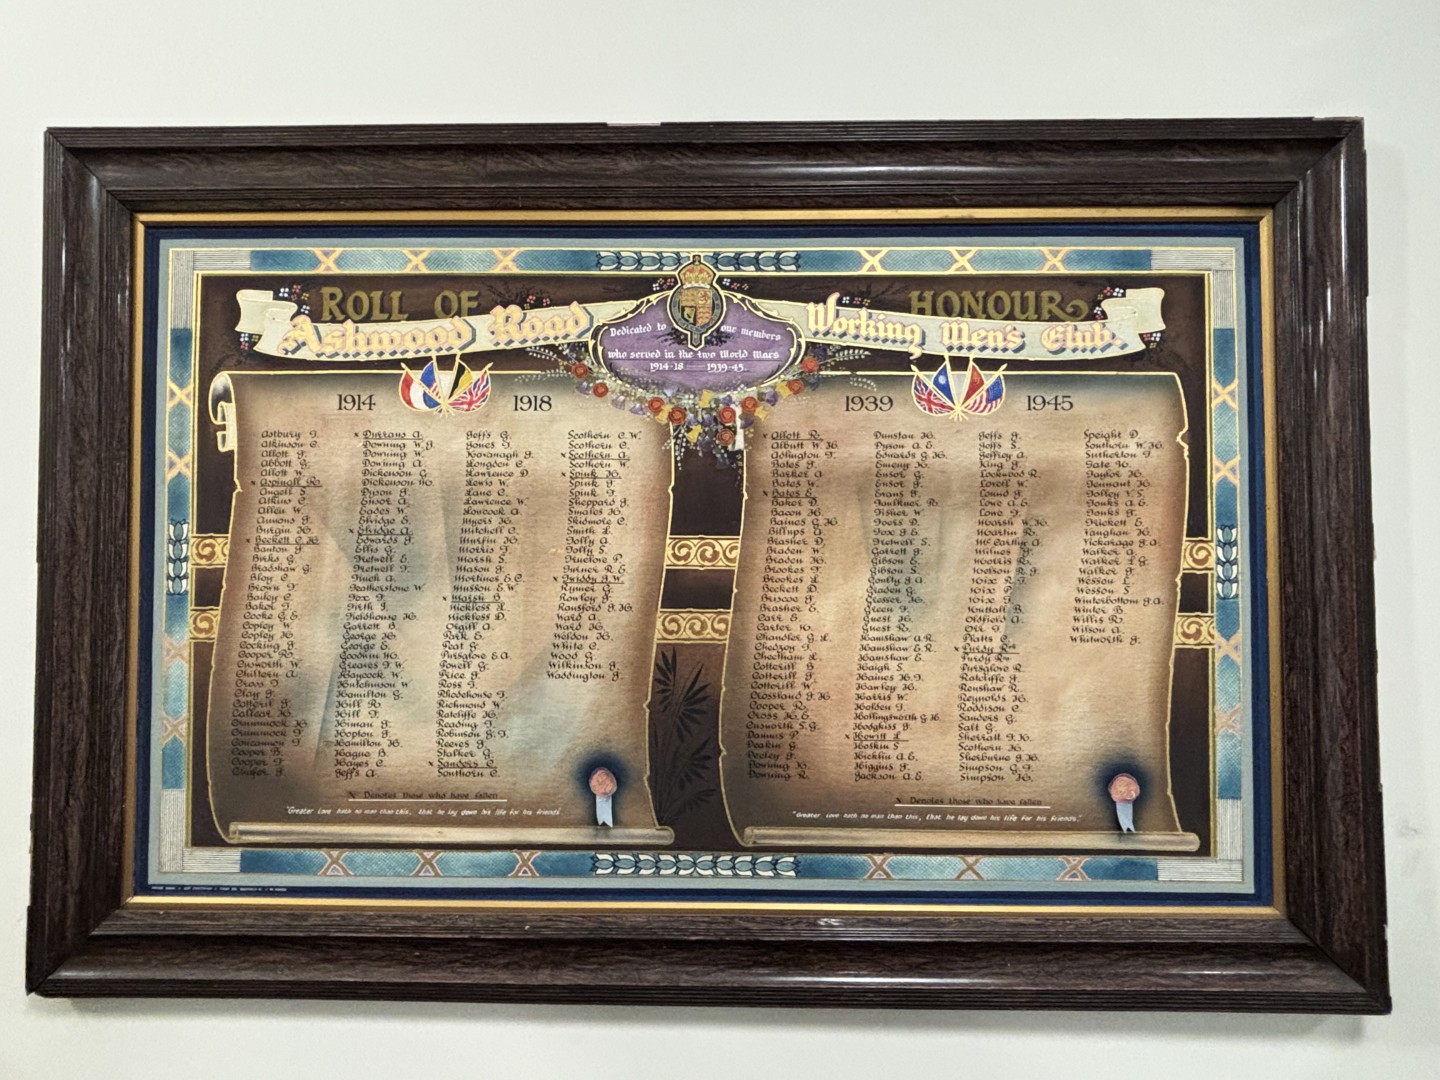 ROLL OF HONOUR
Ashwood Road Working Men's Club.
Dedicated to our members
who served in the two World Wars
1914-18 1939-45.
1914 1918
Astbury T.
Atkinson C.
Allott J.
Abbott G.
Allott W.
x Aspinall R.
Angell S.
Atkins C.
Allen W.
Ammons J.
Burgin H.
x Beckett C.H.
Banton J.
Birks G.
Bradshaw G.
Bloy C.
Brown T.
Bailey C.
Baker J.
Cooke G.E.
Copley W.
Copley H.
Cocking J.
Cooper R.
Cusworth W.
Chiltern A.
Cross J.
Clay J.
Cotterill J.
Callear H.
Crummock H.
Crummock T.
Concannon T.
Cooper B.
Cooper T.
x Durrans A.
Downing W.J.
Downing W.
Downing A.
Dickenson G.
Dickenson H.
Dyson J.
Ensor A.
Eades W.
Elvidge E.
x Elvidge A.
Edwards J.
Ellis G.
Fretwell E.
Fretwell T.
Finch A.
Featherstone W.
Fox T.
Firth J.
Fieldhouse H.
Garrett B.
George H.
George E.
Goodwin H.
Greaves T.W.
Haycock W.
Hutchinson W.
Hamilton G.
Hill R.
Hill T.
Hinman J.
Hopton J.
Hamilton H.
Hague B.
Hayes C.
Jeffs A.
Jeffs G.
Jones T.
Kavanagh J.
Longden C.
Lawrence D.
Lewis W.
Lane C.
Lawrence W.
Lowcock A.
Myers H.
Mitchell C.
Murfin H.
Morris T.
Marsh S.
Mason J.
Mortines E.C.
Musson E.W.
x Marsh B.
Nickless L.
Nickless D.
Orgill A.
Park E.
Peat G.
Pursglove E.A.
Powell G.
Price J.
Ross J.
Rhodehouse T.
Richmond W.
Ratcliffe H.
Reading T.
Robinson G.T.
Reeves J.
Stalker G.
x Sanders C.
Southern C.
Scothern C.W.
Scothern C.
x Scothern A.
Scothern W.
x Spink H.
Spink J.
Spink T.
Sheppard J.
Smales H.
Skidmore C.
Smith L.
Tolly A.
Tolly S.
Truelove P.
Turner R.E.
x Twiddy J.W.
Rymer G.
Rowley J.
Ransford J.H.
Ward A.
Ward H.
Weldon H.
White C.
Wood G.
Wilkinson J.
Waddington J.
x Denotes those who have fallen
"Greater love hath no man than this, that he lay down his life for his friends"
1939 1945
x Allott R.
Albutt W.H.
Adlington T.
Bates J.
Barker A.
Bates W.
x Bates E.
Baker D.
Bacon H.
Baines G.H.
Billups A.
Blasher D.
Braden W.
Braden J.
Brookes T.
Brookes L.
Beckett D.
Briscoe J.
Brasher E.
Carr E.
Carter H.
Chandler G.L.
Chedzoy J.
Cheetham L.
Cotterill B.
Cotterill J.
Cotterill W.
Crossland J.H.
Cooper R.
Cross H.E.
Cusworth S.G.
Dannis P.
Deakin G.
Deeley J.
Downing H.
Downing R.
Dunstan H.
Dyson A.E.
Edwards G.H.
Emeny H.
Ensor G.
Ensor J.
Evans J.
Faulkner R.
Fisher W.
Foers D.
Fox J.E.
Fretwell S.
Garrett J.
Gibson E.
Gibson S.
Goully J.A.
Graden G.
Grosser H.
Green T.
Guest H.
Guest R.
Hamshaw A.R.
Hamshaw E.R.
Hamshaw E.
Haigh S.
Haines H.J.
Hawley H.
Harris W.
Holden T.
Hollingsworth G.H.
Hodgkiss J.
x Howitt L.
Hoskin S.
Hicklin A.E.
Higgins J.
Jackson A.E.
Jeffs J.
Jeffs S.
Jeffrey A.
King J.
Lockwood R.
Lovell W.
Lound J.
Lowe A.E.
Lowe T.
Marsh W.H.
Martin R.
McCarthy A.
Milnes J.
Morris H.
Neilson R.J.
Nixe R.T.
Nixe P.
Nixe T.
Nuttall B.
Oldfield A.
Orr T.
Platts C.
x Purdy R.
Purdy R.
Pursglove R.
Ratcliffe J.
Renshaw R.
Reynolds H.
Roddison C.
Sanders G.
Salt G.
Sherratt J.H.
Scothern H.
Sherburne J.H.
Simpson G.T.
Simpson H.
Speight D.
Southern W.H.
Sutherton J.
Tate H.
Taylor H.
Tennant H.
Tolley V.S.
Tonks A.E.
Tonks J.
Trickett E.
Vaughan H.
Vickarage J.A.
Walker A.
Walker L.G.
Walker J.
Wesson L.
Wesson S.
Winterbottom J.A.
Winter B.
Willis R.
Wilson A.
Whitworth J.
X Denotes those who have fallen
"Greater love hath no man than this, that he lay down his life for his friends."